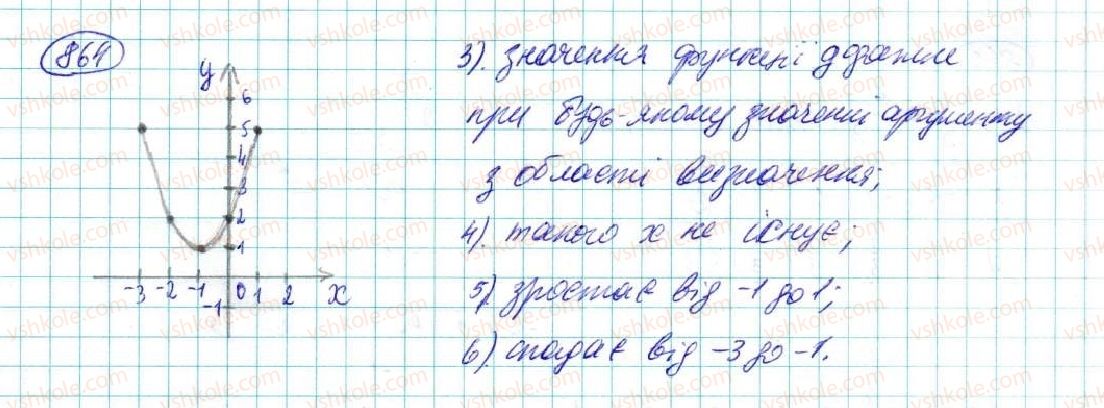 864
y
6
5
4
3
2
1
-3 -2 -1 0 1 2 x
-1
3). значення функції додатні
при будь-якому значенні аргументу
з області визначення;
4). такого x не існує;
5) зростає від -1 до 1;
6) спадає від -3 до -1.
vshkole.com